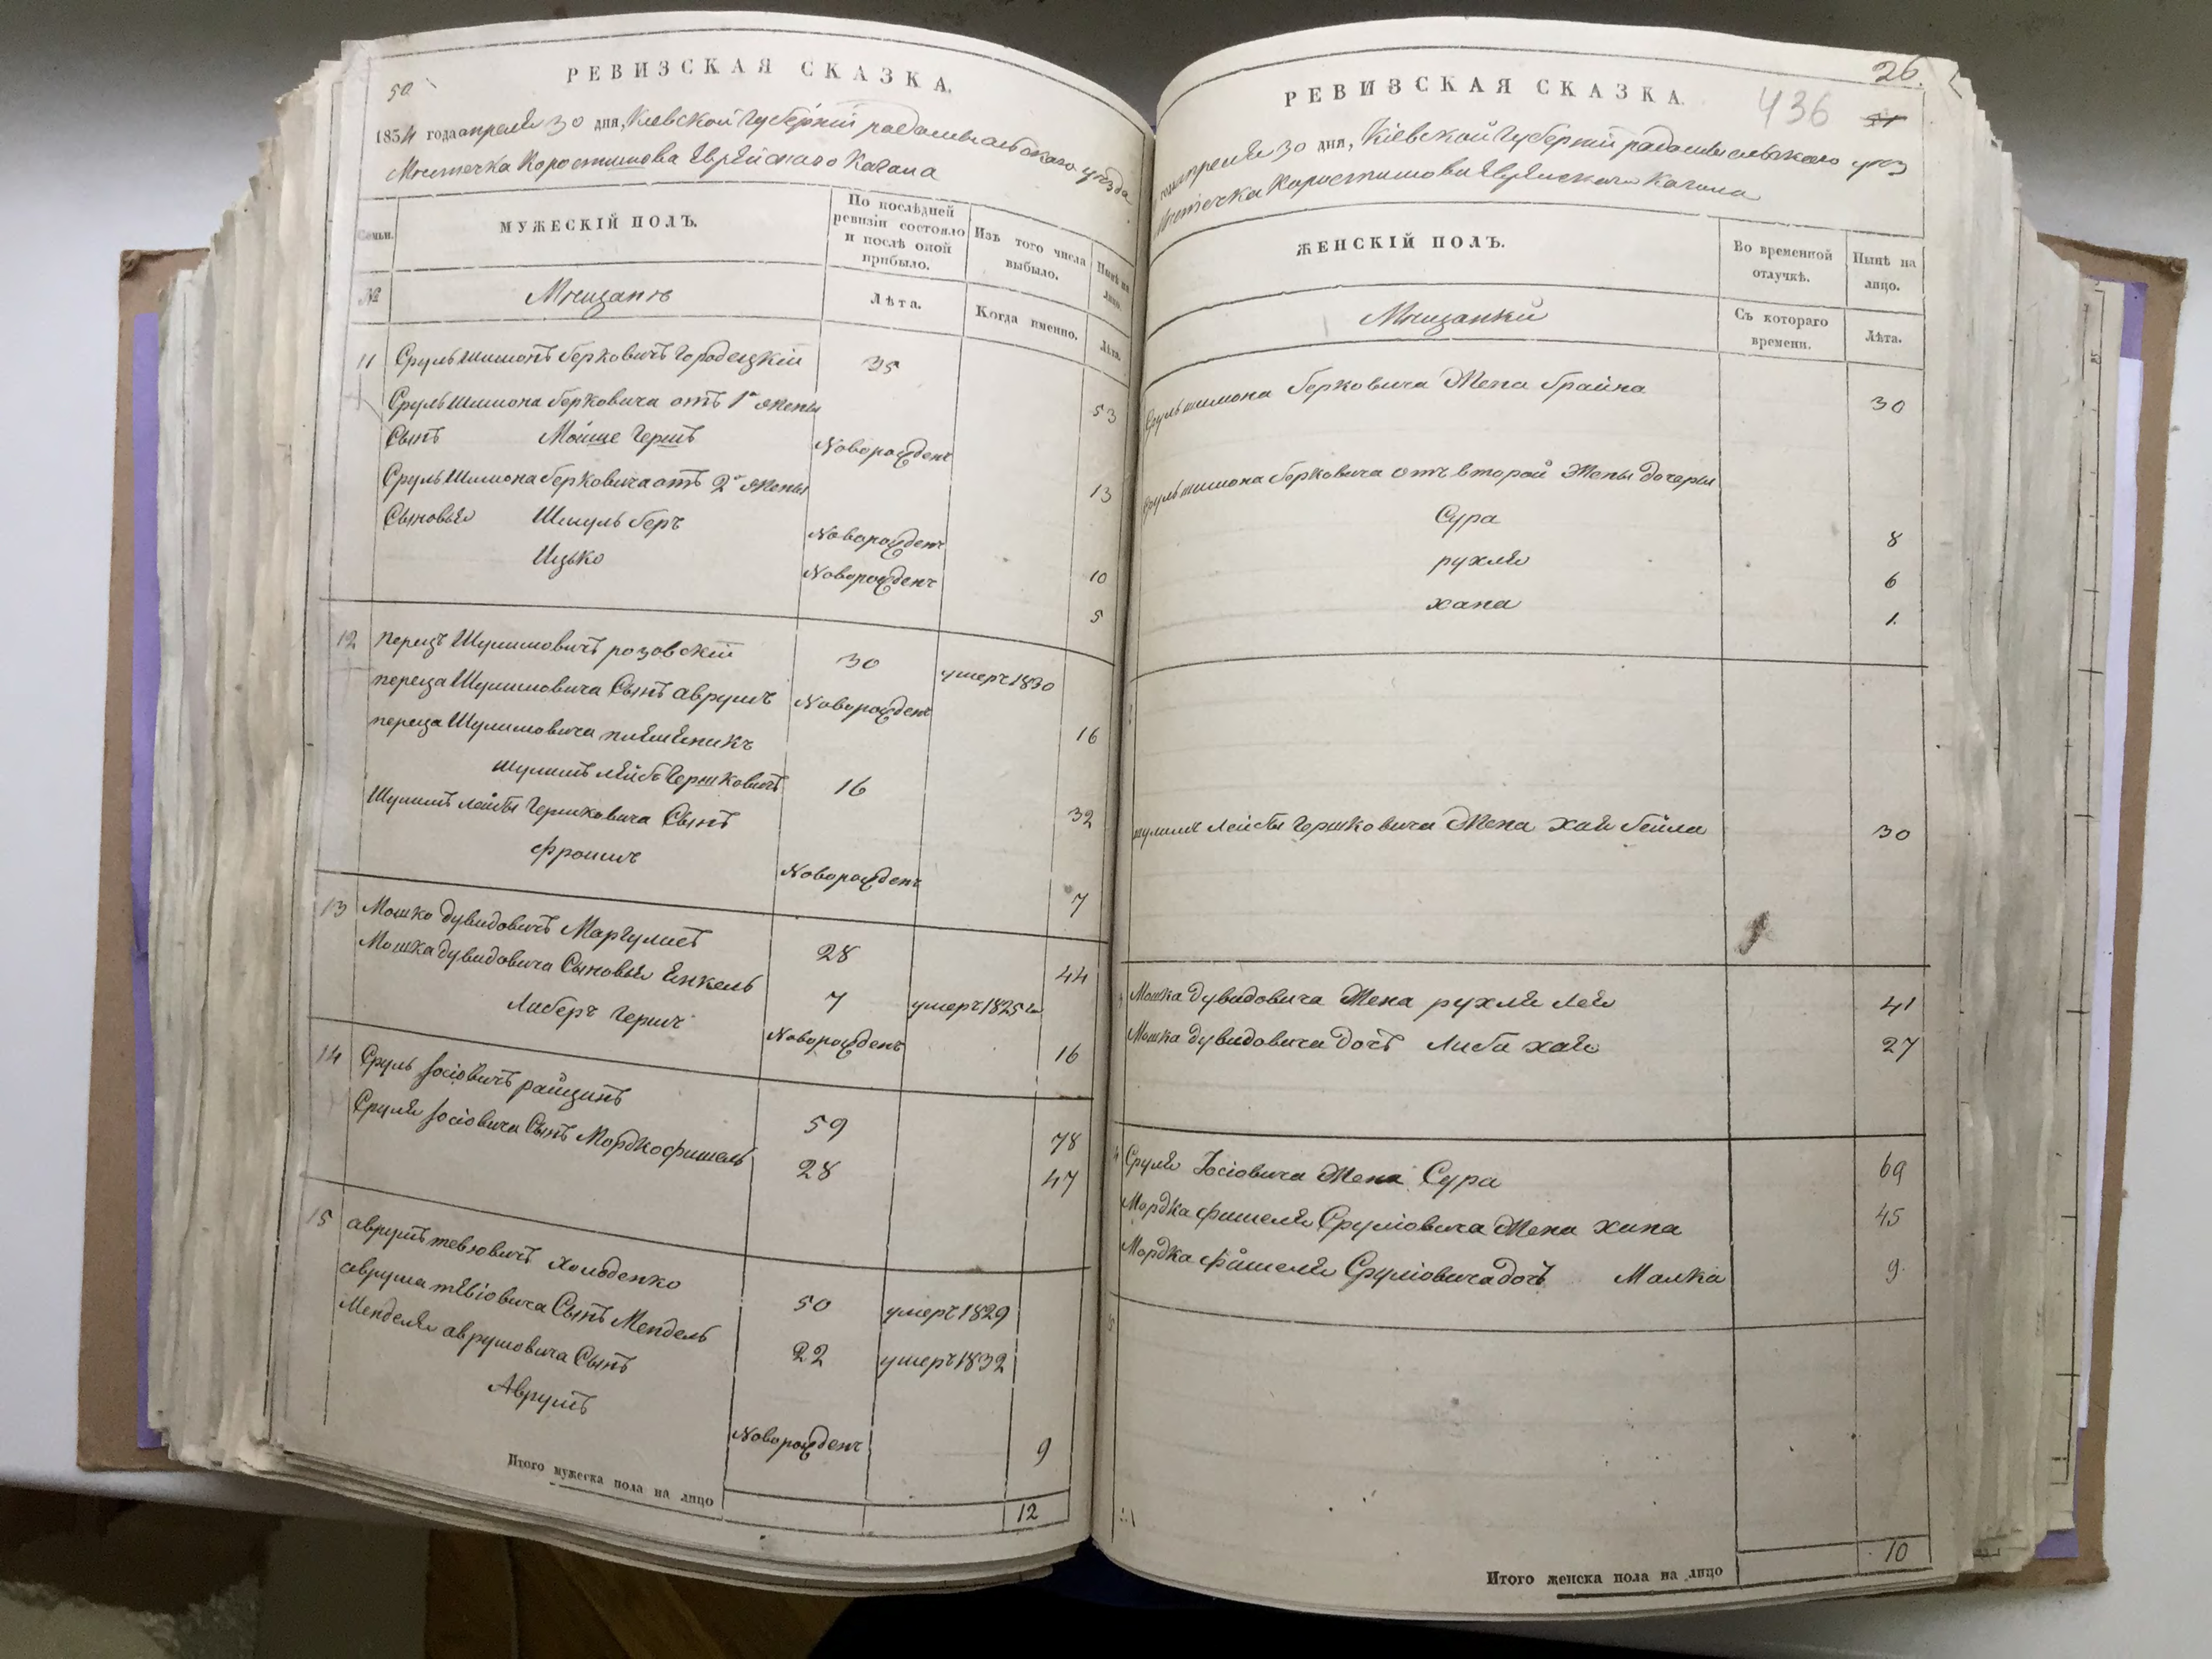 50
РЕВИЗСКАЯ СКАЗКА.
1834 года апреля 30 дня, Кіевской Губерніи радомысльского уезда
Местечка Коростишова Еврейского Кагала
Семьи. МУЖЕСКІЙ ПОЛЪ. По послѣдней ревизіи состояло и послѣ оной прибыло. Изъ того числа выбыло. Нынѣ на лицо.
№ Мещане Лѣта. Когда именно. Лѣта.
11 Сруль Шимонъ Берковичъ Городецкій 35 53
Сруль Шимона Берковича отъ 1й жены
Сынъ Мойше Гершъ Новорожденъ 13
Сруль Шимона Берковича отъ 2й жены
Сыновья Шмуль Беръ Новорожденъ 10
Ицько Новорожденъ 5
12 перецъ Шулимовичъ розовскій 30 умеръ 1830
переца Шулимовича Сынъ аврумъ Новорожденъ 16
переца Шулимовича племеникъ
шулимъ лейбъ Гершковичъ 16 32
Шулимъ лейбы Гершковича Сынъ
фроимъ Новорожденъ 7
13 Мошко дувидовичъ Маргулисъ 28 44
Мошка дувидовича Сыновья Енкель 7 умеръ 1825 го
Либеръ Гершъ Новорожденъ 16
14 Сруль Іосіовичъ райцинъ 59 78
Сруля Іосіовича Сынъ Мордко фишель 28 47
15 аврумъ тевіовичъ холоденко 50 умеръ 1829
аврума тевіовича Сынъ Мендель 22 умеръ 1832
Менделя аврумовича Сынъ
Аврумъ Новорожденъ 9
Итого мужеска пола на лицо 12
26.
РЕВИЗСКАЯ СКАЗКА.
436
51
года апреля 30 дня, Кіевской Губерніи радомысльского уезд
Местечка Коростишова Еврейского Кагала
ЖЕНСКІЙ ПОЛЪ. Во временной отлучкѣ. Нынѣ на лицо.
Мещанки Съ котораго времени. Лѣта.
Сруль шимона Берковича Жена Брайна 30
Сруль шимона Берковича отъ второй Жены дочеры
Сура 8
рухля 6
хана 1.
шулимъ Лейбы Гершковича Жена хая бейла 30
Мошка дувидовича Жена рухля лея 41
Мошка дувидовича дочъ Либа хая 27
Сруля Іосіовича Жена Сура 69
Мордка фишеля Сруліовича Жена хана 45
Мордка фишеля Сруліовича дочъ Малка 9.
Итого женска пола на лицо 10